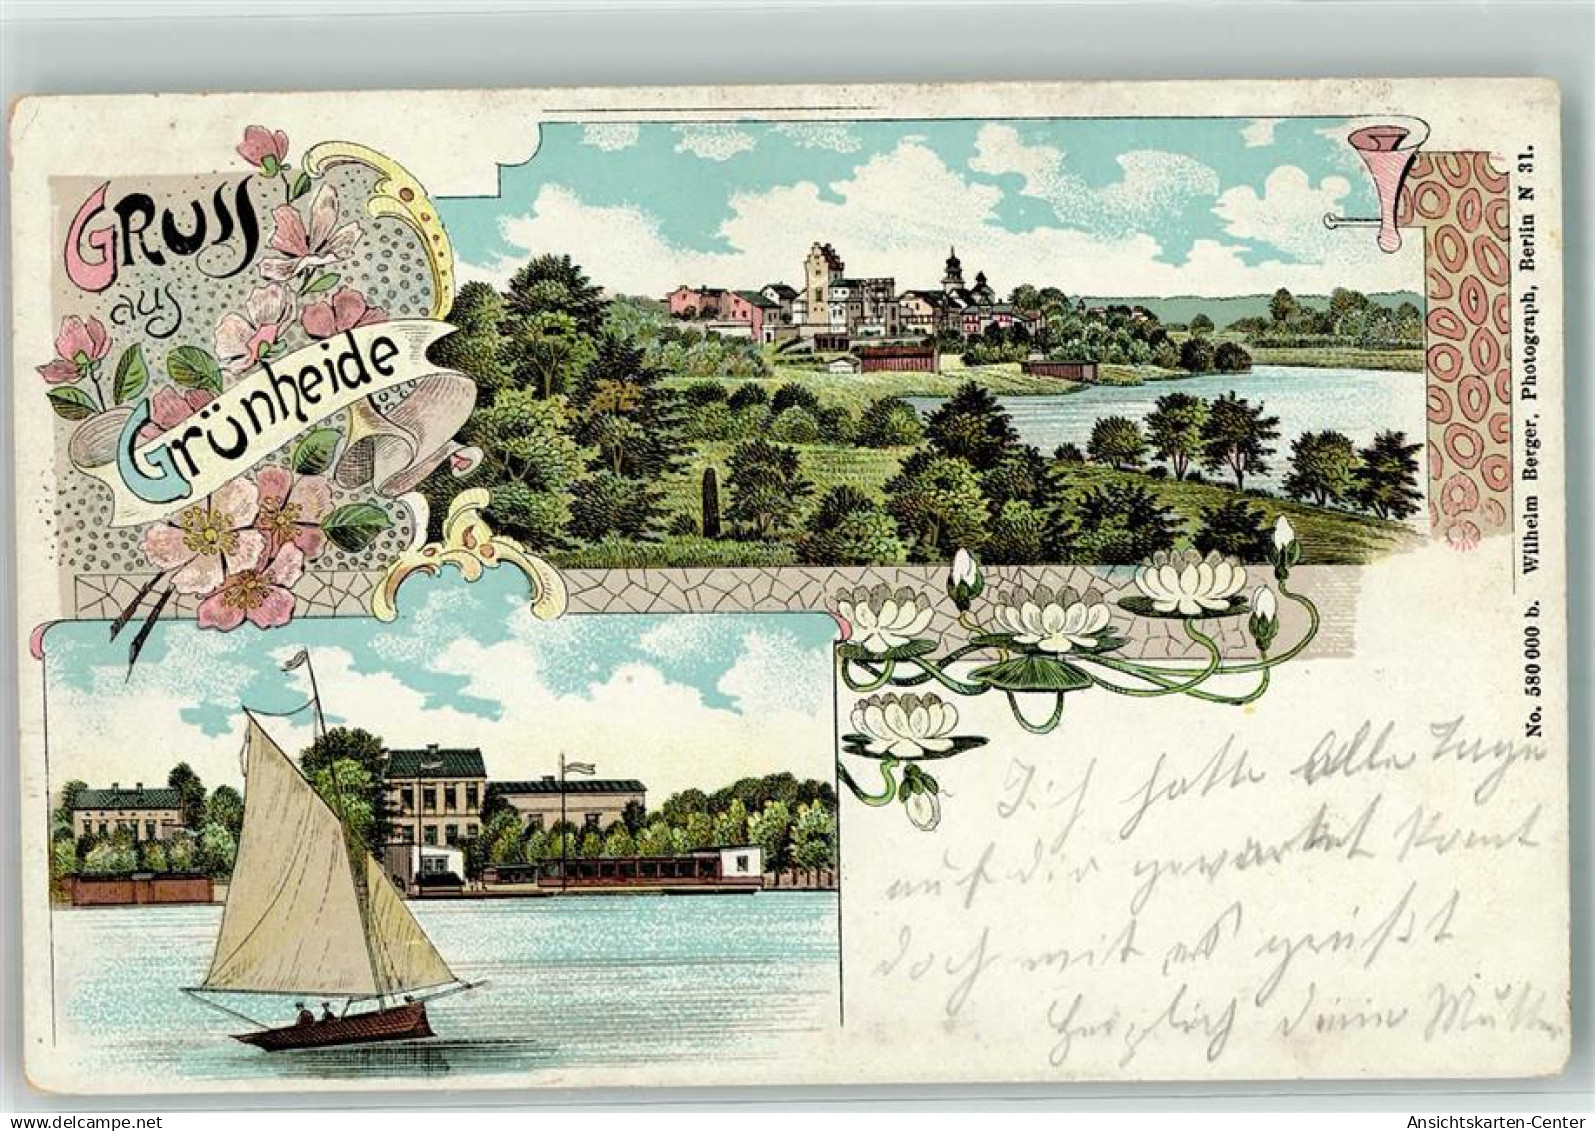 Gruss
aus
Grünheide
No. 580 000 b. Wilhelm Berger, Photograph, Berlin N 31.
Ich hatte Alle Tage
auf dir gewartet komt
doch mit es grüßt
Herzlich deine Mutter
Ansichtskarten-Center